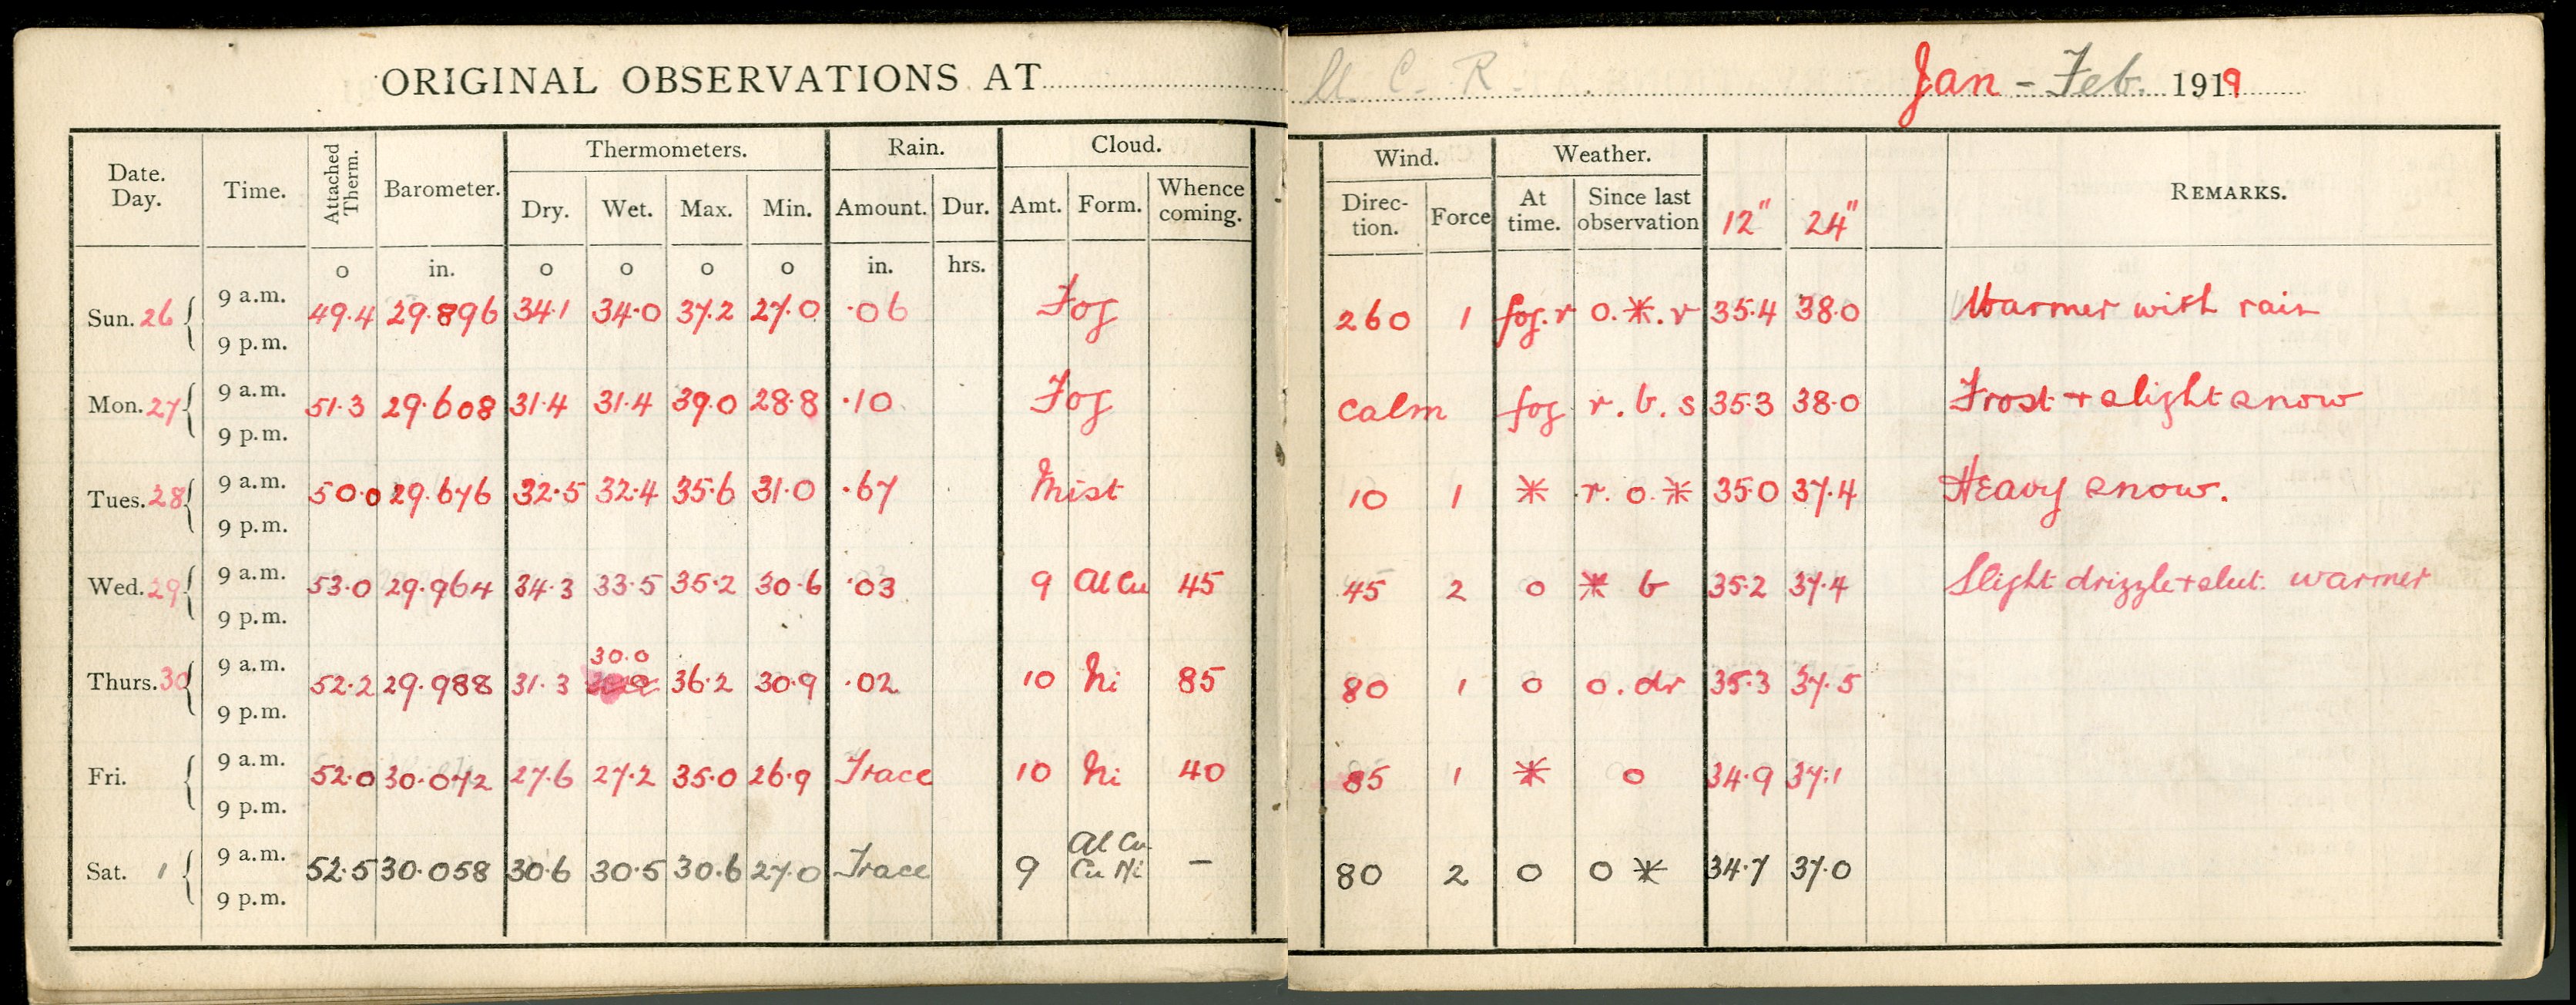 ORIGINAL OBSERVATIONS AT U. C. R. Jan - Feb. 1919
Date. Day. Time. Attached Therm. Barometer. Thermometers. Rain. Cloud. Wind. Weather. REMARKS.
Dry. Wet. Max. Min. Amount. Dur. Amt. Form. Whence coming. Direc- tion. Force At time. Since last observation 12" 24"
o in. o o o o in. hrs.
Sun. 26 9 a.m. 49.4 29.896 34.1 34.0 37.2 27.0 .06 Fog 260 1 fog.r o.*.r 35.4 38.0 Warmer with rain
9 p.m.
Mon. 27 9 a.m. 51.3 29.608 31.4 31.4 39.0 28.8 .10 Fog calm fog r.b.s 35.3 38.0 Frost + slight snow
9 p.m.
Tues. 28 9 a.m. 50.0 29.676 32.5 32.4 35.6 31.0 .67 Mist 10 1 * r.o.* 35.0 37.4 Heavy snow.
9 p.m.
Wed. 29 9 a.m. 53.0 29.964 34.3 33.5 35.2 30.6 .03 9 Al Cu 45 45 2 o * b 35.2 37.4 Slight drizzle + slut. warmer
9 p.m.
Thurs. 30 9 a.m. 52.2 29.988 31.3 30.0 36.2 30.9 .02 10 Ni 85 80 1 o o.dr 35.3 37.5
9 p.m.
Fri. 9 a.m. 52.0 30.072 27.6 27.2 35.0 26.9 Trace 10 Ni 40 85 1 * o 34.9 37.1
9 p.m.
Sat. 1 9 a.m. 52.5 30.058 30.6 30.5 30.6 27.0 Trace 9 Al Cu Cu Ni – 80 2 o o * 34.7 37.0
9 p.m.